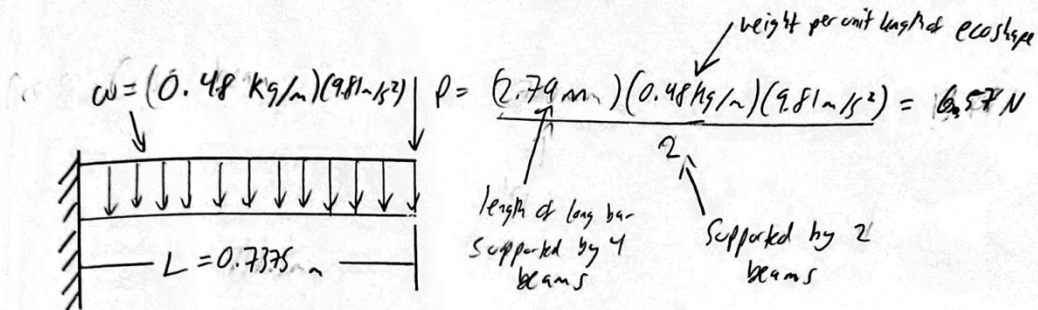 weight per unit length of ecoshape
ω = (0.48 kg/m)(9.81m/s²)
P = (2.79 m)(0.48kg/m)(9.81m/s²) = 6.57 N
2
length of long bar
supported by 4
beams
Supported by 2
beams
L = 0.7375 m